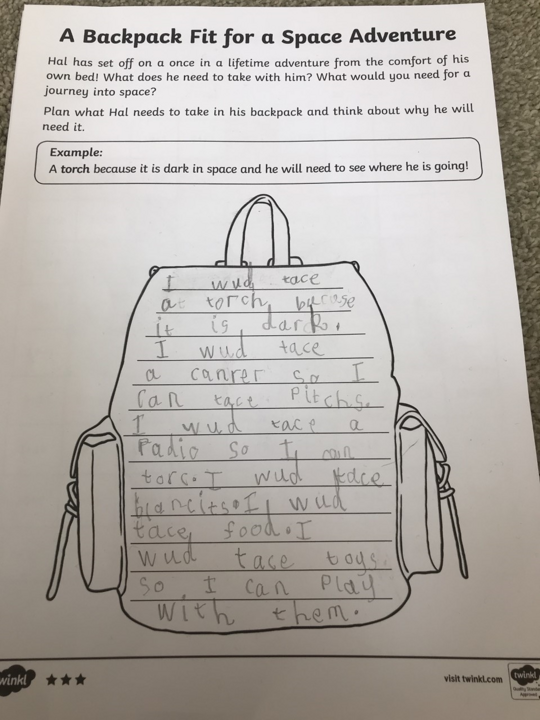 A Backpack Fit for a Space Adventure
Hal has set off on a once in a lifetime adventure from the comfort of his
own bed! What does he need to take with him? What would you need for a
journey into space?
Plan what Hal needs to take in his backpack and think about why he will
need it.
Example:
A torch because it is dark in space and he will need to see where he is going!
I wud tace
a torch
it is dark.
I wud tace
a canrer so I
can tace Pitchs.
I wud tace a
radio so I can
torc. I wud tace
blancits. I wud
tace food. I
wud tace toys
so I can Play
with them.
twinkl
visit twinkl.com
twinkl